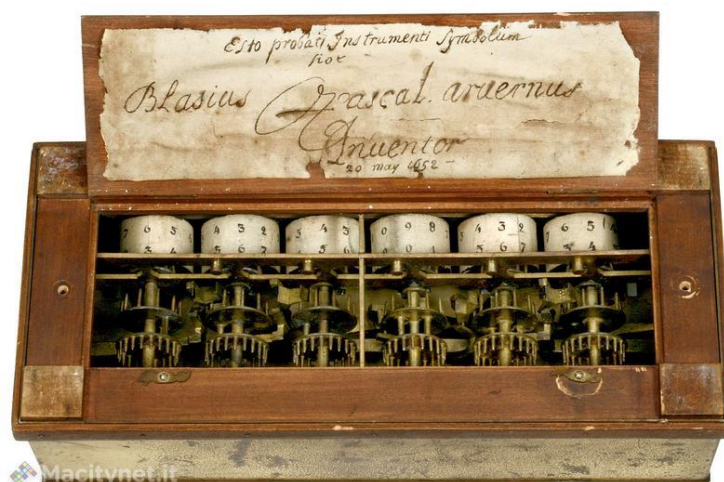 Esto probati Instrumenti Symbolum
hoc
Blasius Pascal. aruernus
Inuentor
20 may 1652
7 6 5
4 3 2
5 4 3
0 9 8
5 4 3
7 6 5
3 4
5 6 7
5 6
9 0
4 5 6 7
3 4
Macitynet.it